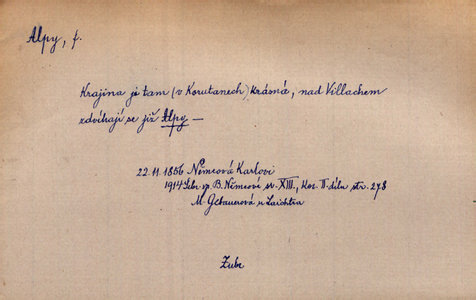 Alpy, f.
Krajina je tam (v Korutanech) krásná, nad Villachem
zdvíhají se již Alpy —
22. 11. 1856 Němcová Karlovi
1914 Sebr. sp. B. Němcové sv. XIII., Kor. II. dílu str. 278
M. Gebauerová u Laichtra
Zubr